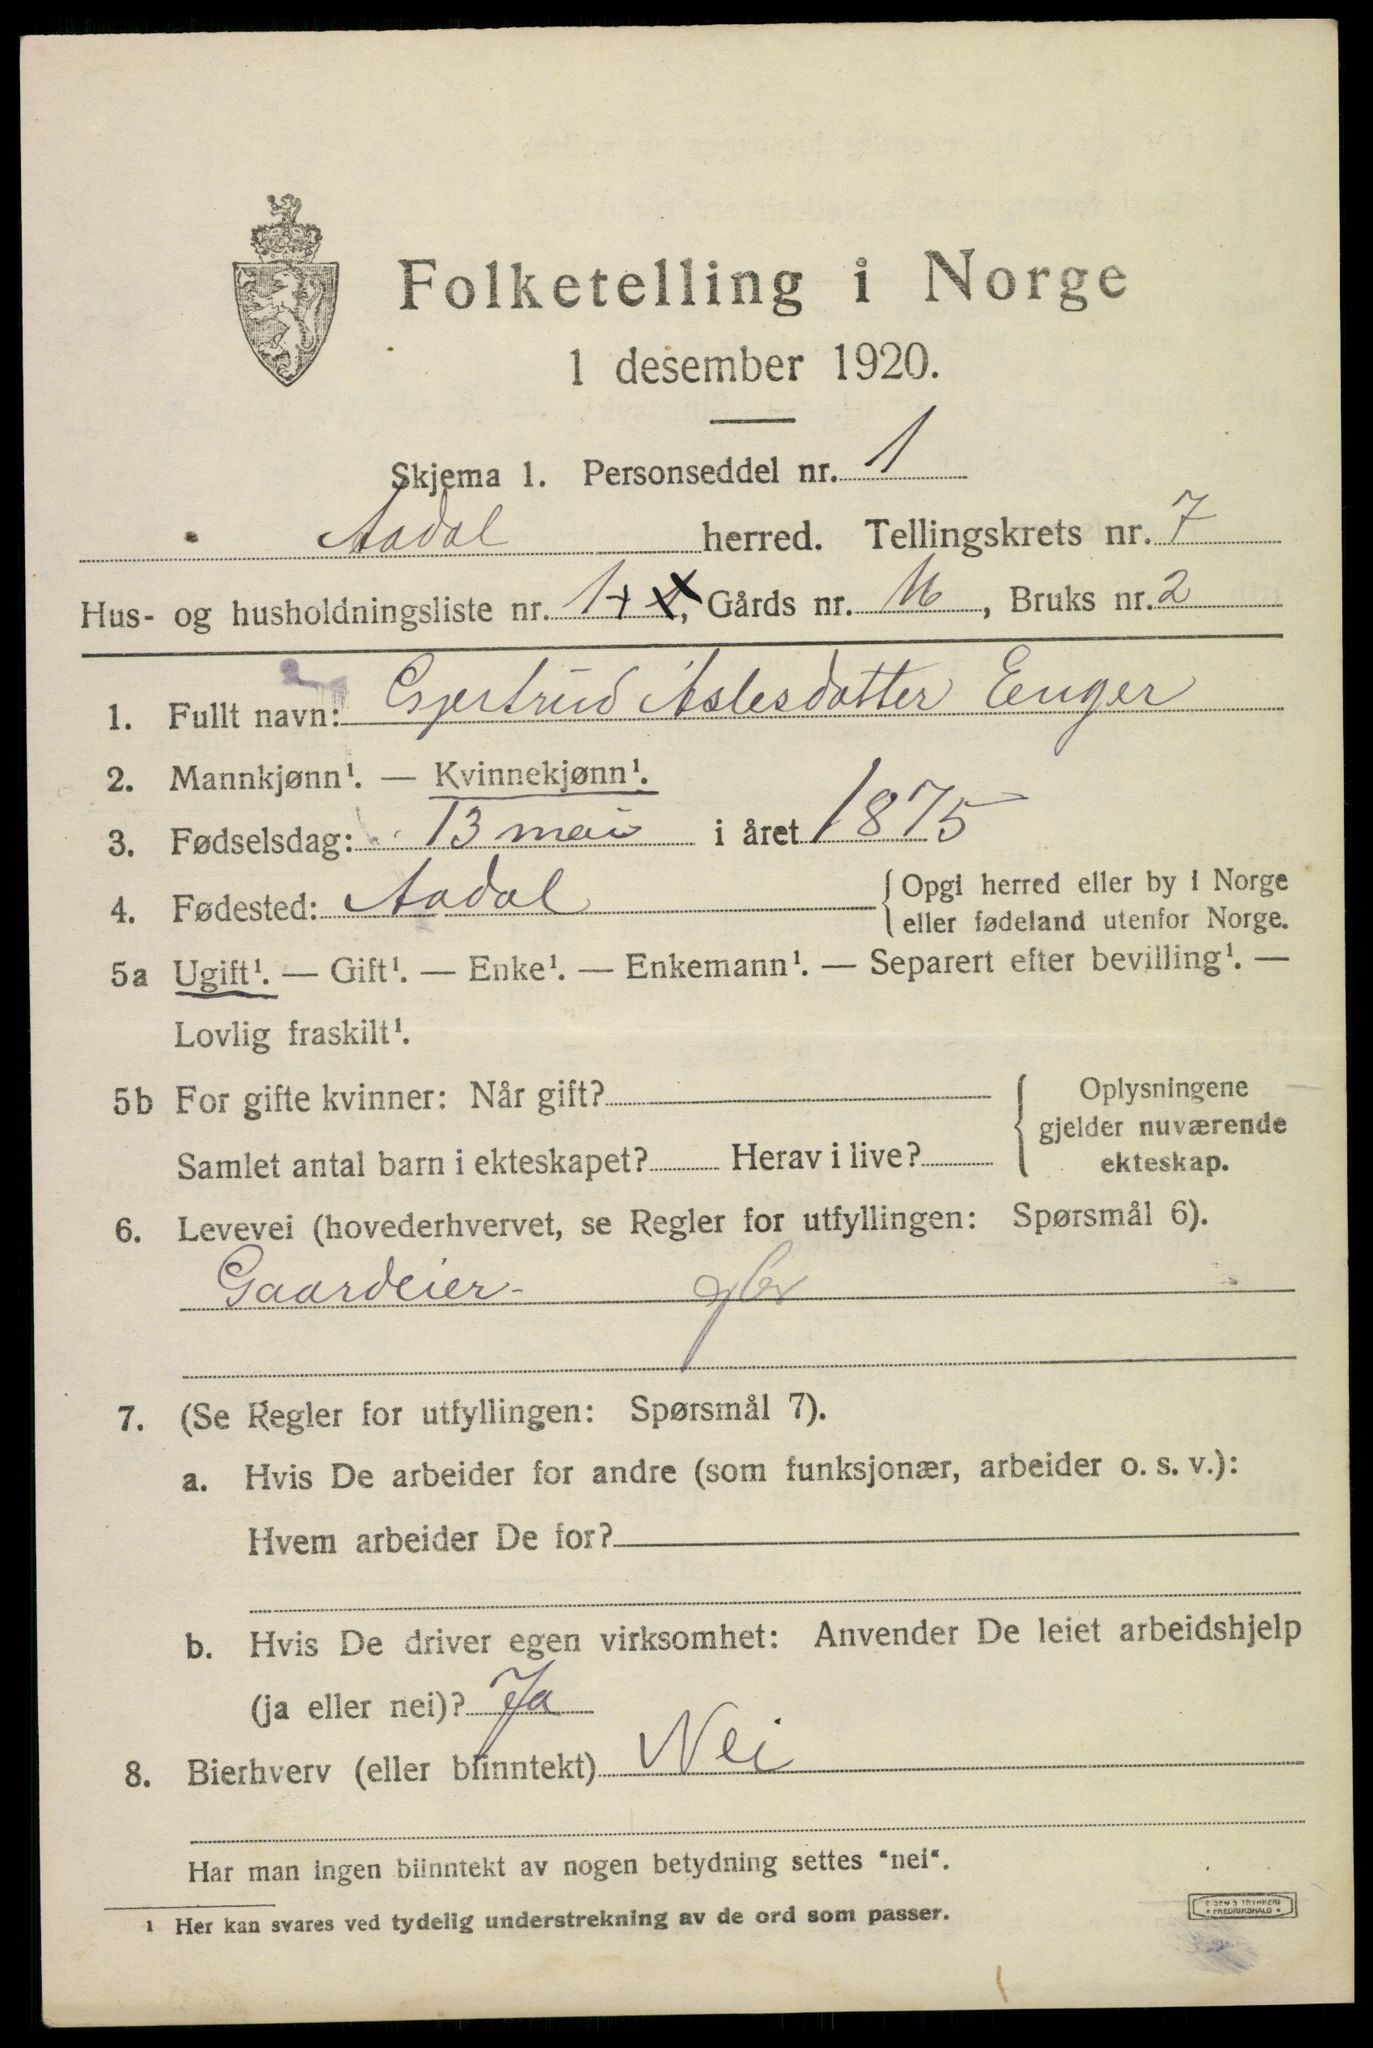 Folketelling i Norge
1 desember 1920.
Skjema 1. Personseddel nr. 1
Aadal herred. Tellingskrets nr. 7
Hus- og husholdningsliste nr. 1, Gårds nr. , Bruks nr. 2
1. Fullt navn: Gjertrud Aslesdatter Enger
2. Mannkjønn¹. — Kvinnekjønn¹.
3. Fødselsdag: 13 mai i året 1875
4. Fødested: Aadal { Opgi herred eller by i Norge
eller fødeland utenfor Norge.
5a Ugift¹. — Gift¹. — Enke¹. — Enkemann¹. — Separert efter bevilling¹. —
Lovlig fraskilt¹.
5b For gifte kvinner: Når gift? { Oplysningene
gjelder nuværende
Samlet antal barn i ekteskapet? Herav i live? ekteskap.
6. Levevei (hovederhvervet, se Regler for utfyllingen: Spørsmål 6).
Gaardeier-
7. (Se Regler for utfyllingen: Spørsmål 7).
a. Hvis De arbeider for andre (som funksjonær, arbeider o. s. v.):
Hvem arbeider De for?
b. Hvis De driver egen virksomhet: Anvender De leiet arbeidshjelp
(ja eller nei)? Ja
8. Bierhverv (eller biinntekt) Nei
Har man ingen biinntekt av nogen betydning settes "nei".
¹ Her kan svares ved tydelig understrekning av de ord som passer.
FREDRIKSHALD